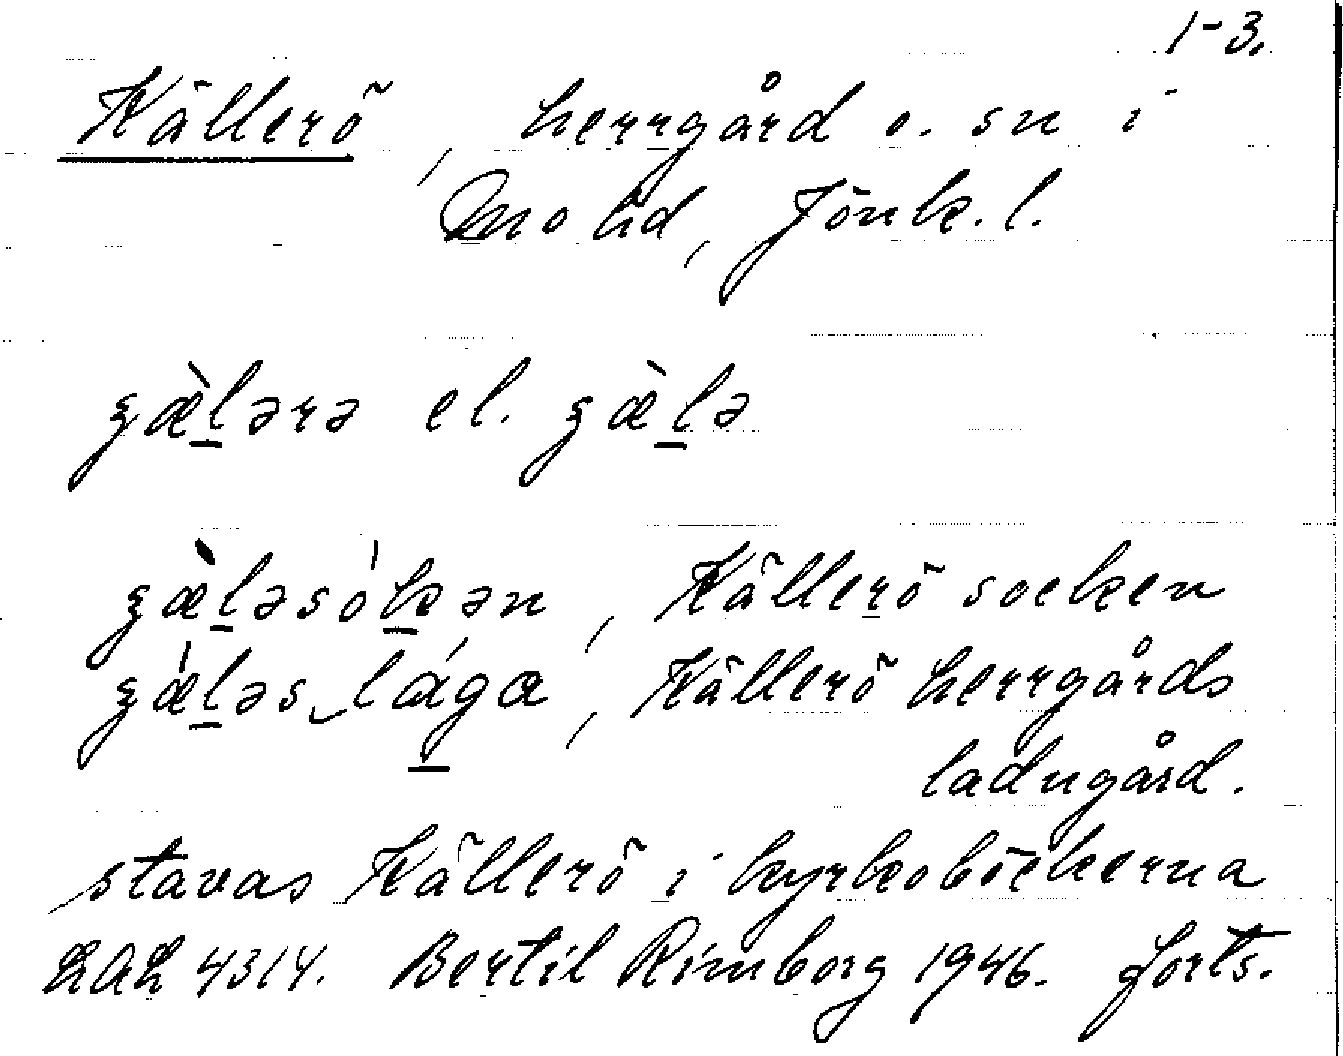 1-3.
Källerö, herrgård o. sn i
Mo hd, Jönk. l.
ʓæ̀lərə el. ʓæ̀lə
ʓæ̀ləsókən, Källerö socken
ʓæ̀ləs lága, Källerö herrgårds
ladugård.
stavas Källerö i kyrkoböckerna
LAL 4314. Bertil Rimborg 1946. forts.